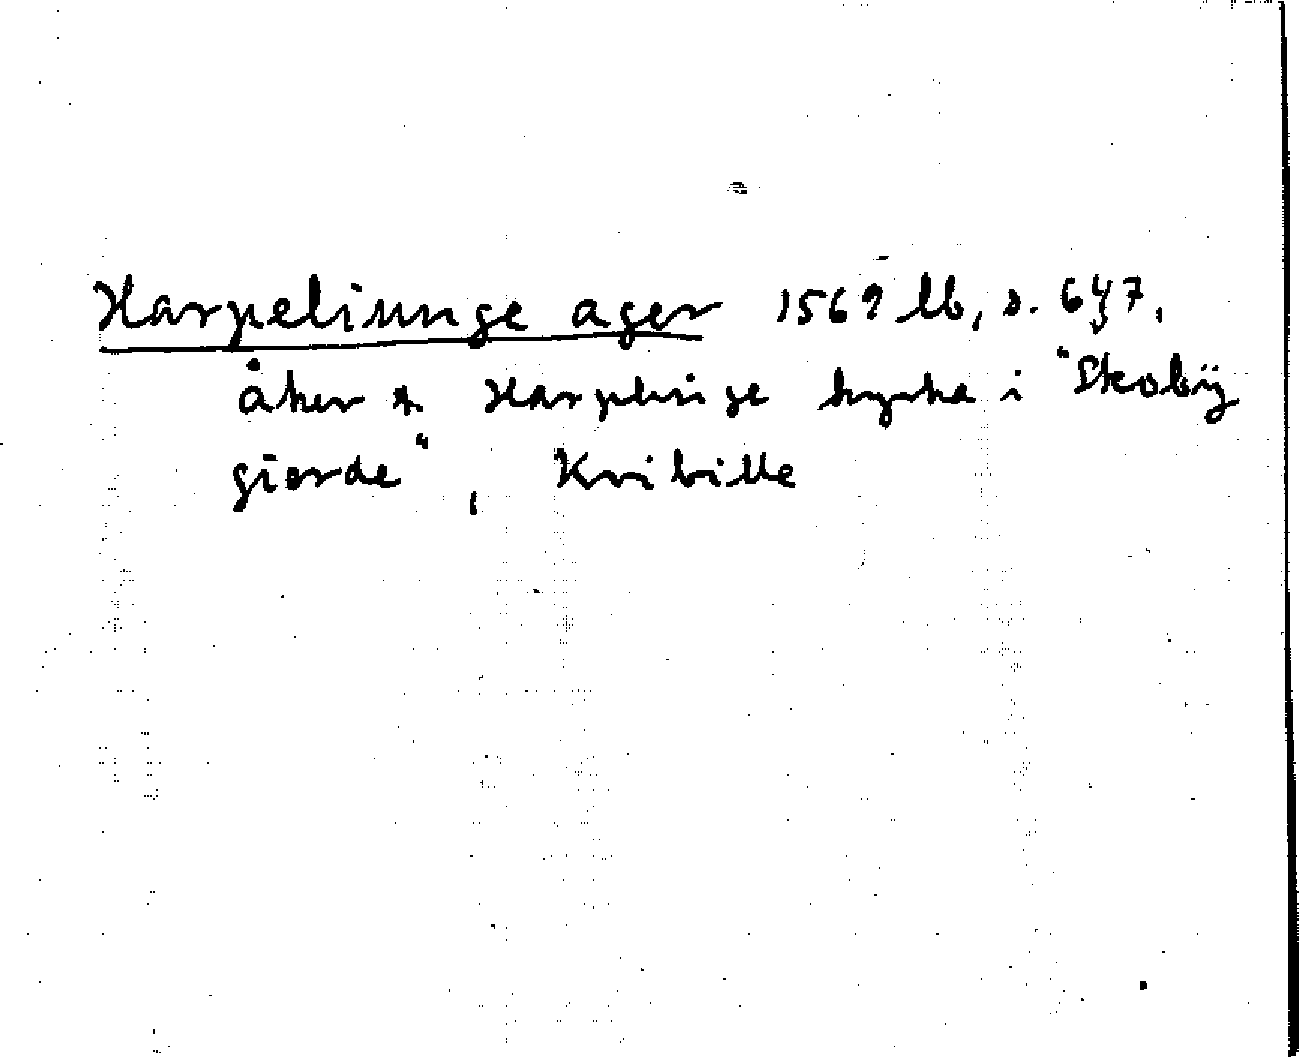 Harpeliunge ager 1569 lb, s. 647.
åker t. Harplinge kyrka i "Skobÿ
gierde", Kvibille